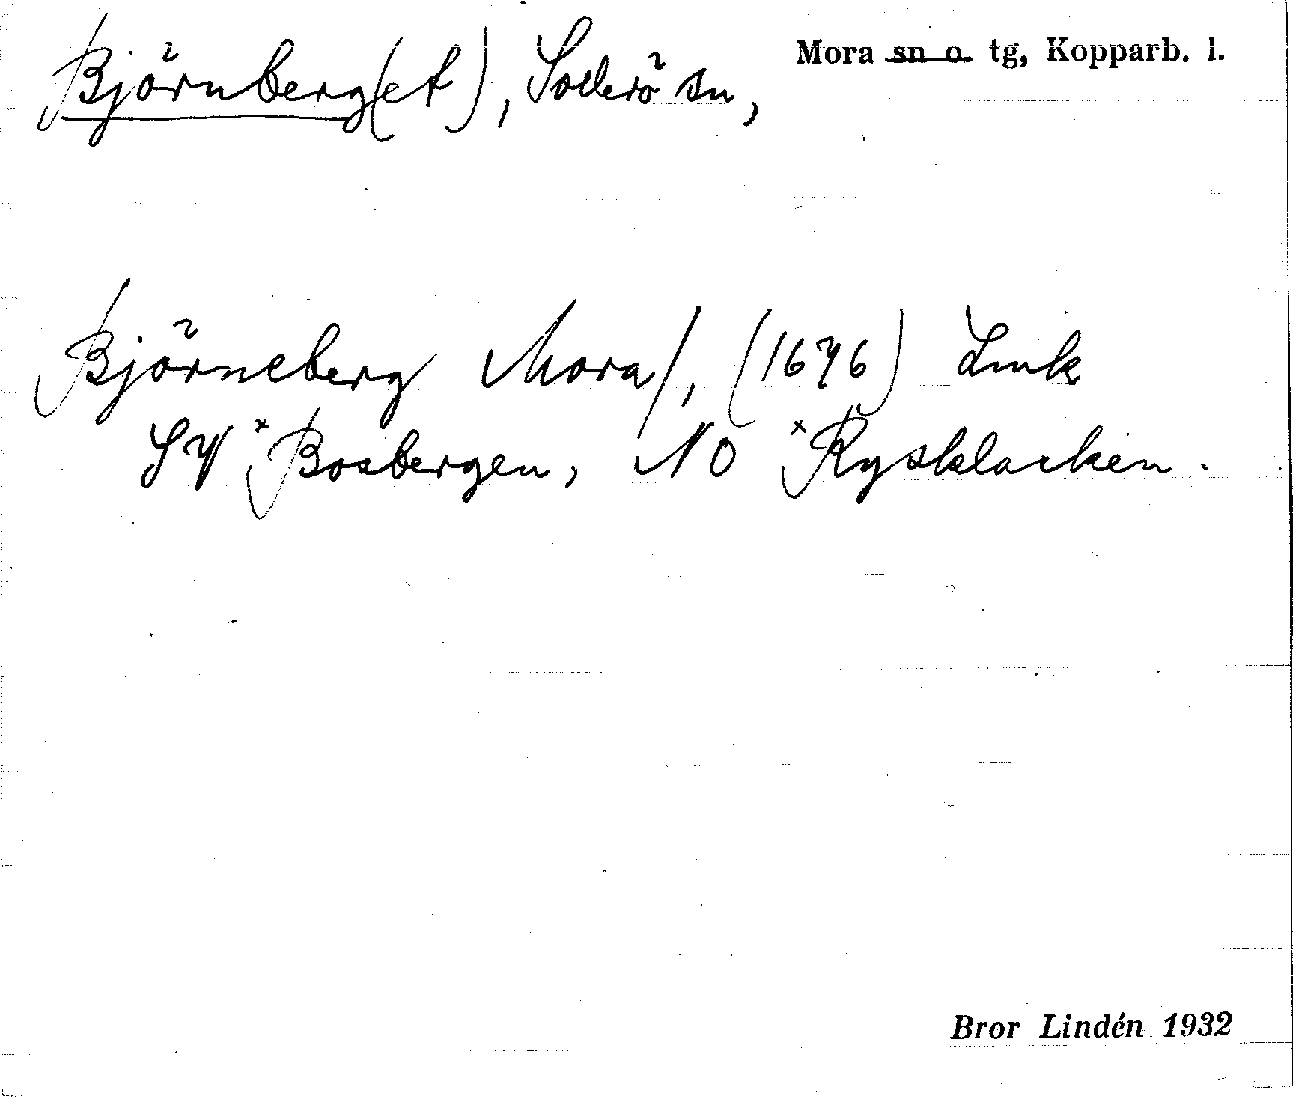 Björnberg(et), Sollerö sn, Mora sn o. tg, Kopparb. l.
Björneberg Mora/, (1676) Lmk
SV ×Bosbergen, NO ×Rysklacken.
Bror Lindén 1932